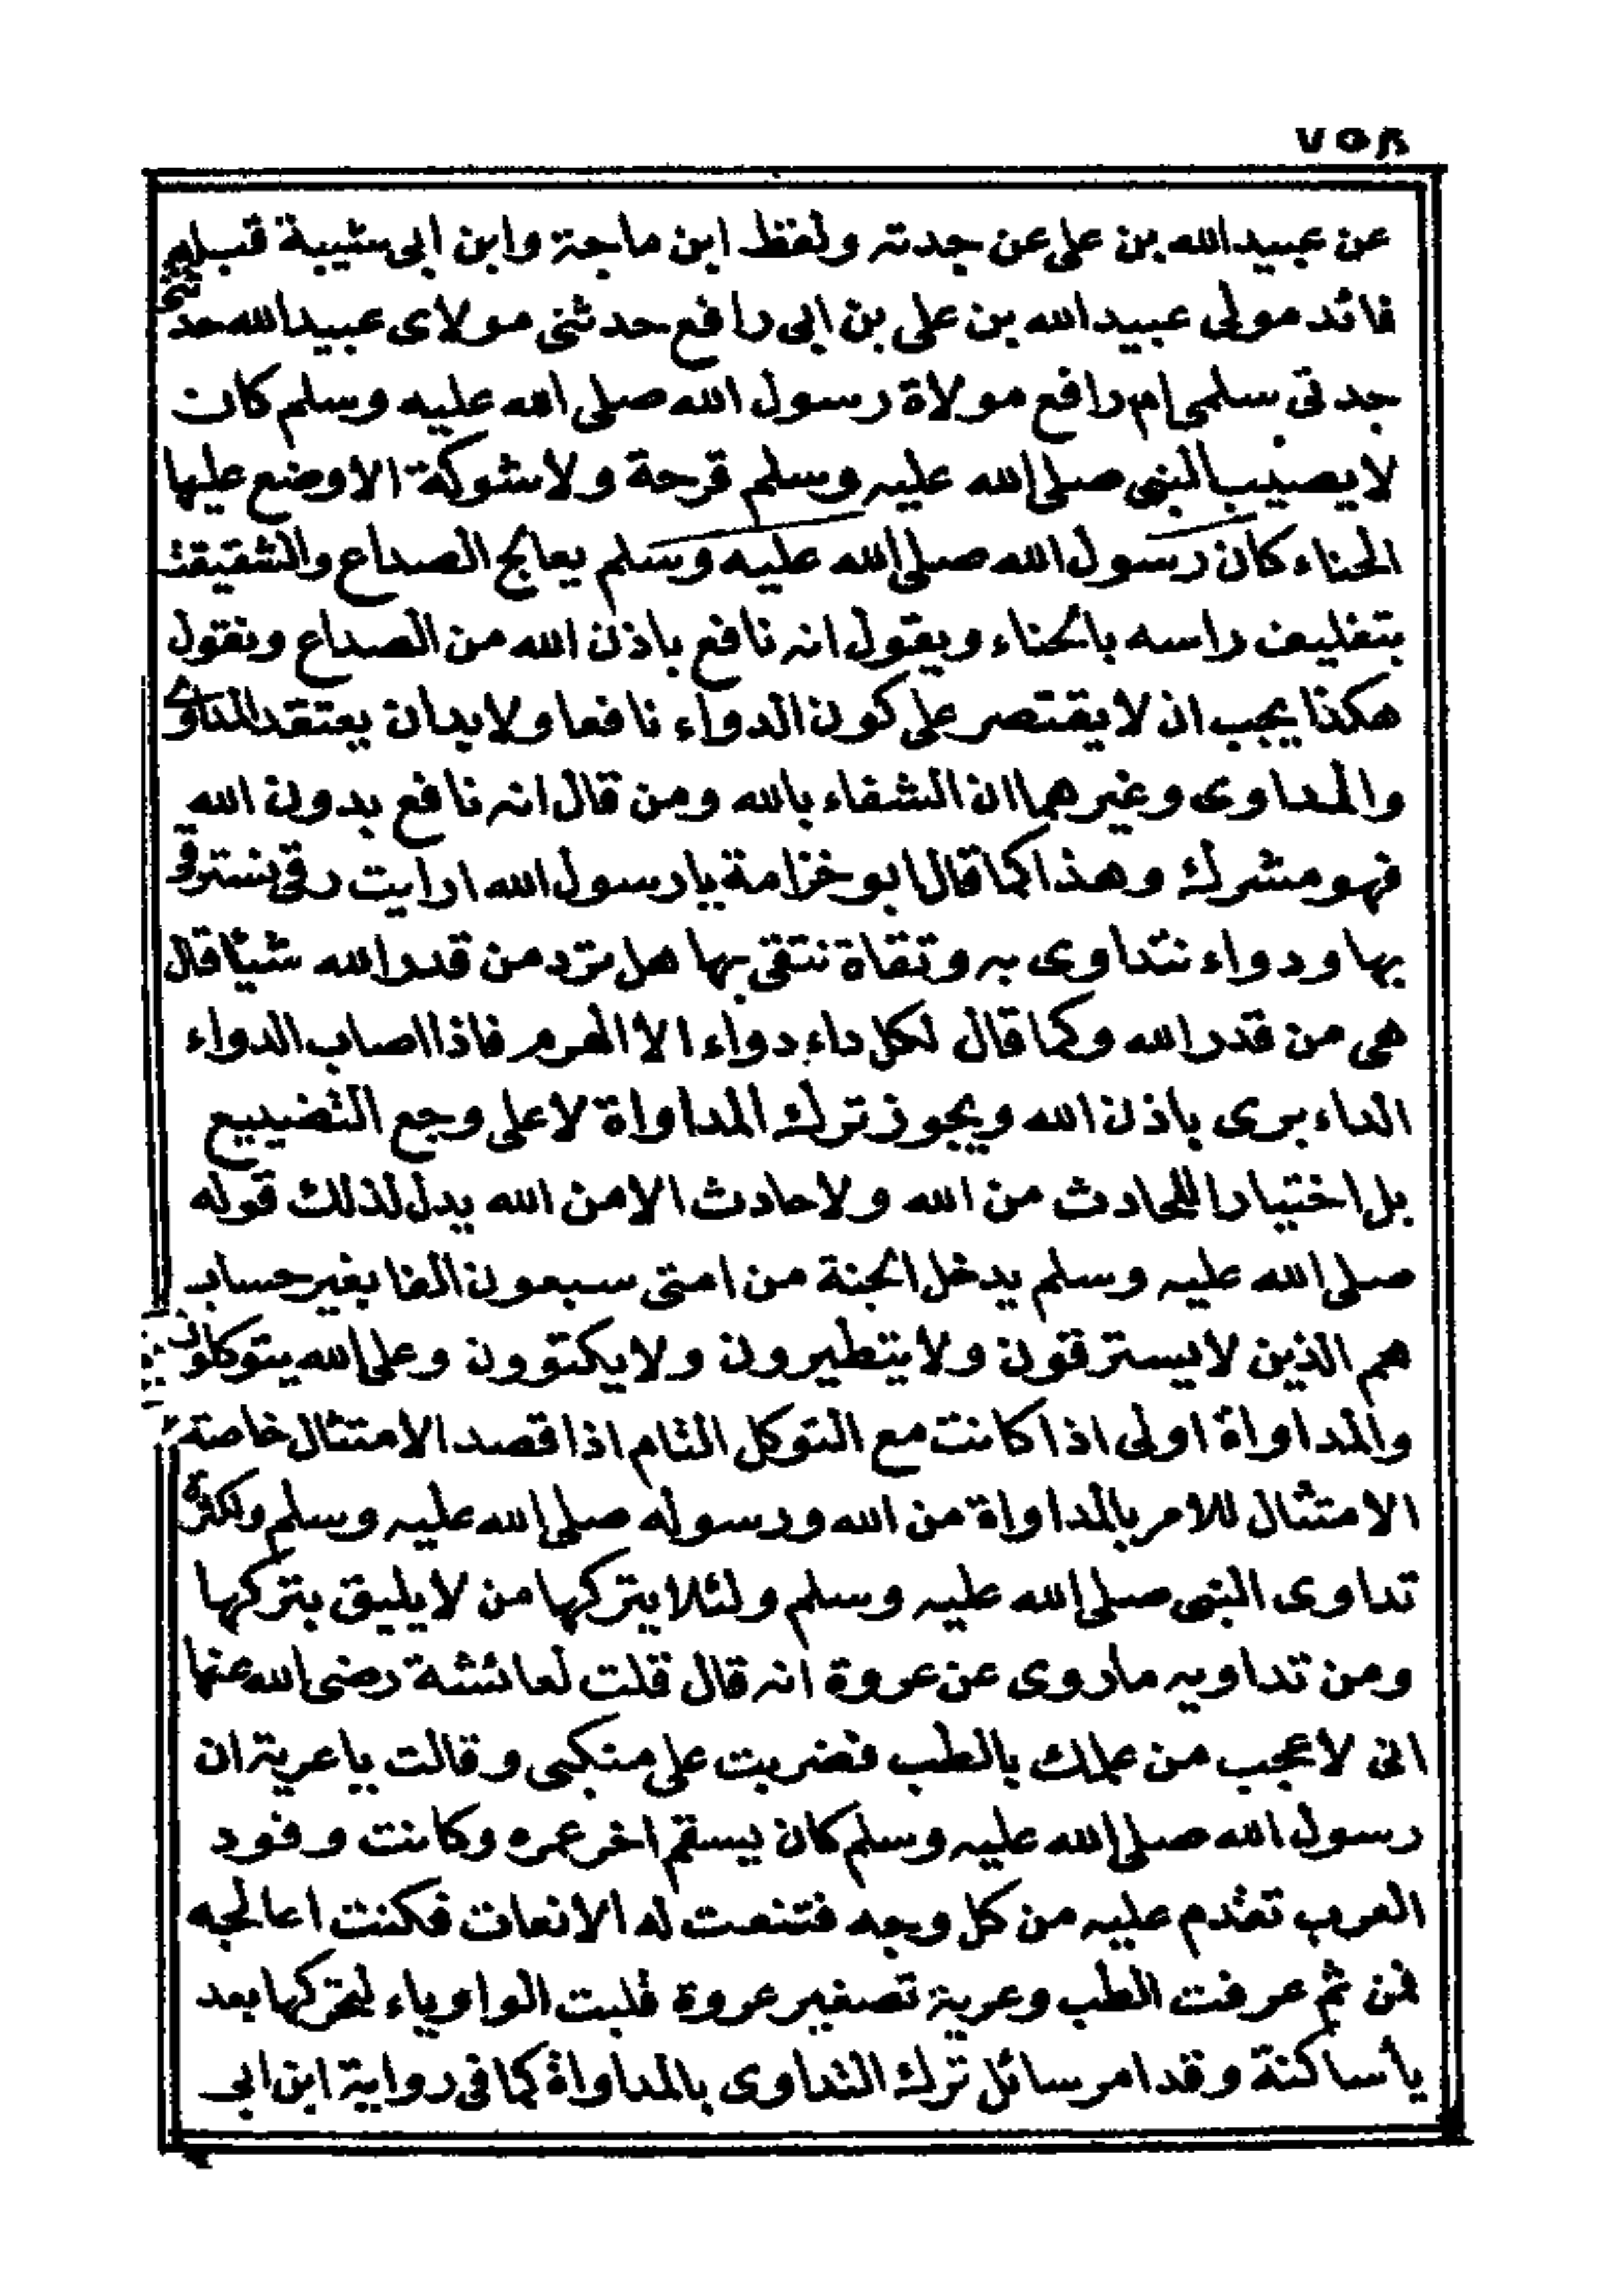 ٧٥٨
عن عبيد الله بن على عن جدته ولفظ ابن ماجة وابن ابى شيبة قبله
فائد مولى عبيد الله بن على بن ابى رافع حدثنى مولاى عبيد الله حدثتنى
جدتى سلمى ام رافع مولاة رسول الله صلى الله عليه وسلم كان
لا يصيب النبى صلى الله عليه وسلم قرحة ولا شوكة الا وضع عليها
الحناء كان رسول الله صلى الله عليه وسلم يعالج الصداع والشقيقة
بتغليف راسه بالحناء ويقول انه نافع باذن الله من الصداع ونقول
هكذا يجب ان لا يقتصر على كون الدواء نافعا ولا بد ان يعتقد المداوى
والمداوى وغيرهما ان الشفاء بالله ومن قال انه نافع بدون الله
فهو مشرك وهذا كما قال ابو خزامة يا رسول الله ارايت رقى نسترقى
بها ودواء نتداوى به وتقاة نتقى بها هل ترد من قدر الله شيئا قال
هى من قدر الله وكما قال لكل داء دواء الا الهرم فاذا اصاب الدواء
الداء برى باذن الله ويجوز ترك المداواة لا على وجع التضييع
بل اختيارا للحادث من الله ولا حادث الا من الله يدل لذلك قوله
صلى الله عليه وسلم يدخل الجنة من امتى سبعون الفا بغير حساب
هم الذين لا يسترقون ولا يتطيرون ولا يكتوون وعلى الله يتوكلون
والمداواة اولى اذا كانت مع التوكل التام اذا قصد الامتثال خاصة
الامتثال للامر بالمداواة من الله ورسوله صلى الله عليه وسلم ولكثرة
تداوى النبى صلى الله عليه وسلم ولئلا يتركها من لا يليق بتركها
ومن تداويه ما روى عن عروة انه قال قلت لعائشة رضى الله عنها
انى لاعجب من علمك بالطب فضربت على منكبى وقالت يا عرية ان
رسول الله صلى الله عليه وسلم كان يسقم اخر عمره وكانت وفود
العرب تقدم عليه من كل وجه فتنعت له الانعات فكنت اعالجه
فمن ثم عرفت الطب وعرية تصغير عروة قلبت الواو ياء لتحركها بعد
ياء ساكنة وقد امر سائل ترك التداوى بالمداواة كما فى رواية ابن ابى